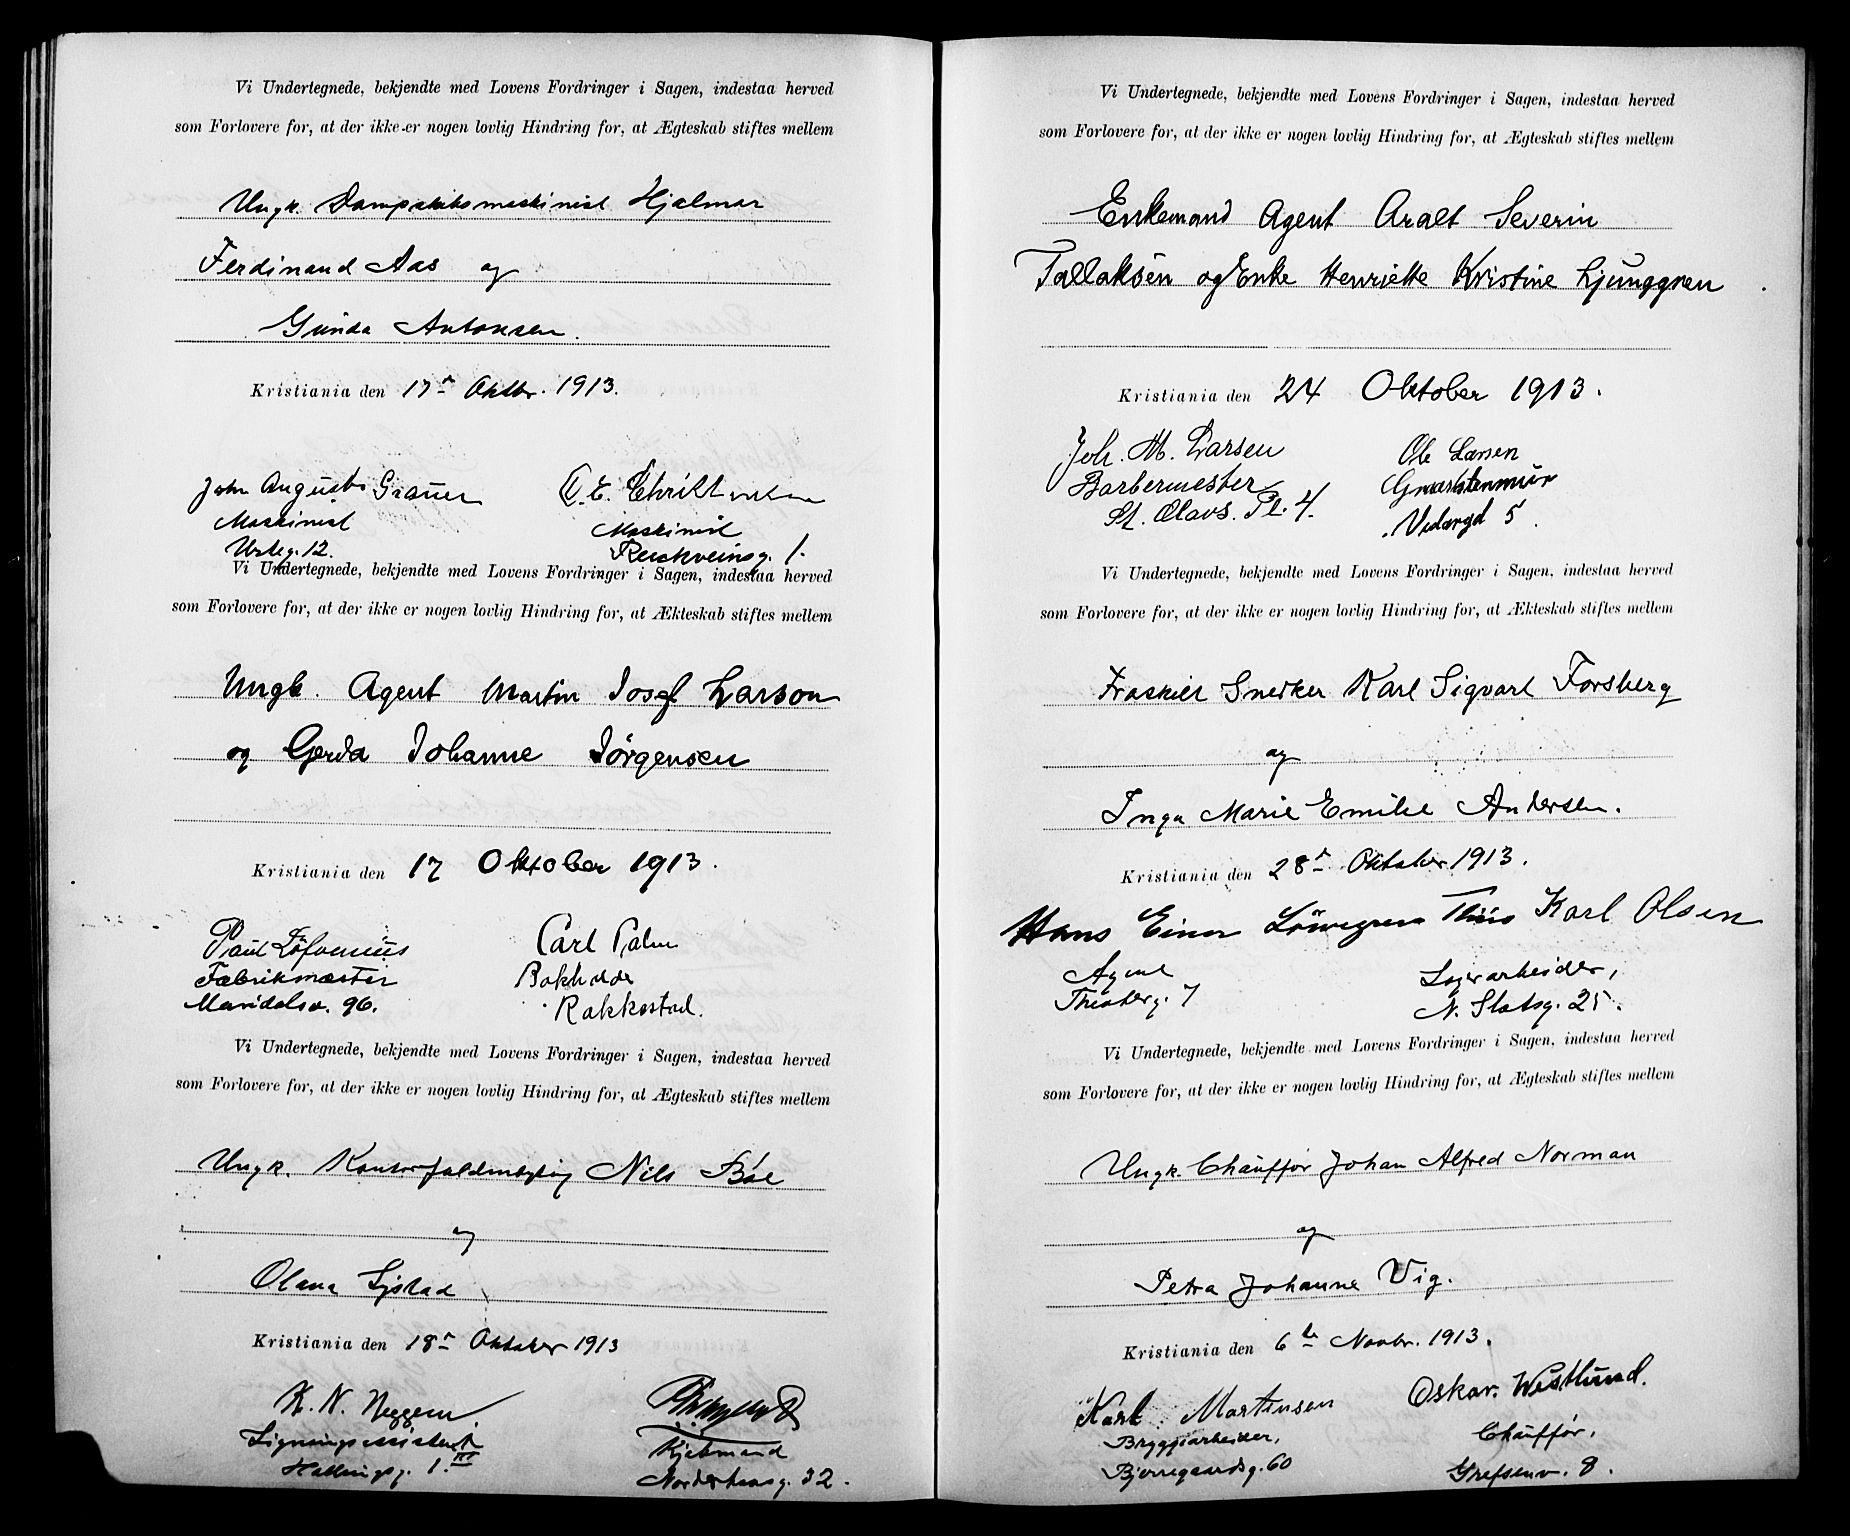 Vi Undertegnede, bekjendte med Lovens Fordringer i Sagen, indestaa herved
som Forlovere for, at der ikke er nogen lovlig Hindring for, at Ægteskab stiftes mellem
Ungk. Dampskibsmaskinist Hjalmar
Ferdinand Aas og
Gunda Antonsen.
Kristiania den 17de Oktbr. 1913.
John August Grauer
Maskinist
Urteg. 12.
C. E.
Maskinist
1.
Vi Undertegnede, bekjendte med Lovens Fordringer i Sagen, indestaa herved
som Forlovere for, at der ikke er nogen lovlig Hindring for, at Ækteskab stiftes mellem
Ungk. Agent Martin Josef Larson
og Gerda Johanne Jörgensen
Kristiania den 17 Oktober 1913.
Paul Löfvenius
Fabrikmester
Maridalsv. 96.
Carl Palm
Bokholder
Rakkestad.
Vi Undertegnede, bekjendte med Lovens Fordringer i Sagen, indestaa herved
som Forlovere for, at der ikke er nogen lovlig Hindring for, at Ægteskab stiftes mellem
Ungk. Kontorfuldmægtig Nils Böe
og
Olava
Kristiania den 18de Oktober 1913
K. N. Heggem
Ligningsassistent
1. III
Kjøbmand
Norderhovsg. 32.
Vi Undertegnede, bekjendte med Lovens Fordringer i Sagen, indestaa herved
som Forlovere for, at der ikke er nogen lovlig Hindring for, at Ægteskab stiftes mellem
Enkemand Agent Aralt Severin
Tallaksen og Enke Henriette Kristine Ljunggren
Kristiania den 24 Oktober 1913.
Joh. M. Larsen
Barbermester
St. Olavs. Pl. 4.
Ole Larsen
5.
Vi Undertegnede, bekjendte med Lovens Fordringer i Sagen, indestaa herved
som Forlovere for, at der ikke er nogen lovlig Hindring for, at Ækteskab stiftes mellem
Fraskilt Snedker Karl Sigvart Forsberg
og
Inga Marie Emilie Andersen.
Kristiania den 28de Oktober 1913.
Hans Einar Löwegren
Agent
Theaterg. 7
Thiis Karl Olsen
Lagerarbeider,
N. Slotsg. 25.
Vi Undertegnede, bekjendte med Lovens Fordringer i Sagen, indestaa herved
som Forlovere for, at der ikke er nogen lovlig Hindring for, at Ægteskab stiftes mellem
Ungk. Chauffør Johan Alfred Norman
og
Petra Johanne Vig.
Kristiania den 6te Novbr. 1913.
Karl Martinsen
Bryggiarbeider,
Bjerregaardsg. 60
Oskar Westlund.
Chauffør,
Grefsenv. 8.